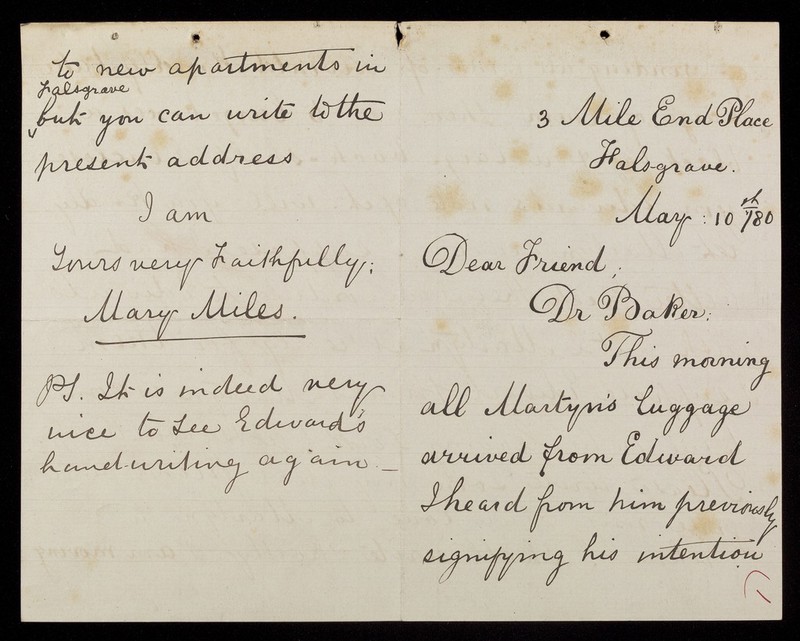 to new apartments in
Falsgrave
but you can write to the
present address
I am
Yours very Faithfully;
Mary Miles.
PS. It is indeed very
nice to see Edward's
hand-writing again _
3 Mile End Place
Falsgrave.
May: 10th /80
Dear Friend,
Dr Baker:
This morning
all Martyn's luggage
arrived from Edward
I heard from him previously
signifying his intention